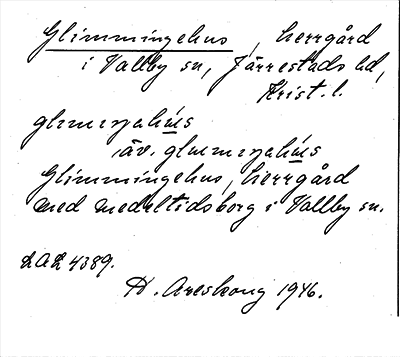 Glimmingehus, herrgård
i Vallby sn, Järrestads hd,
Krist. l.
glımıŋahu̲s
äv. glımıŋahu̲s
Glimmingehus, herrgård
med medeltidsborg i Vallby sn.
LAL 4389.
H. Areskoug 1946.